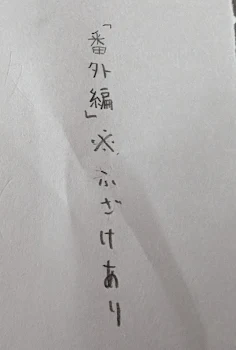 「番外編」※ふざけあり